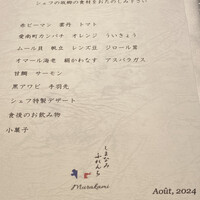 シェフの故郷の食材をおたのしみ下さい
赤ピーマン 雲丹 トマト
愛南町カンパチ オレンジ ういきょう
ムール貝 帆立 レンズ豆 ジロール茸
オマール海老 細かわなす アスパラガス
甘鯛 サーモン
黒アワビ 手羽元
シェフ特製デザート
食後のお飲み物
小菓子
しまなみ
ふれんち
Murakami
Août, 2024